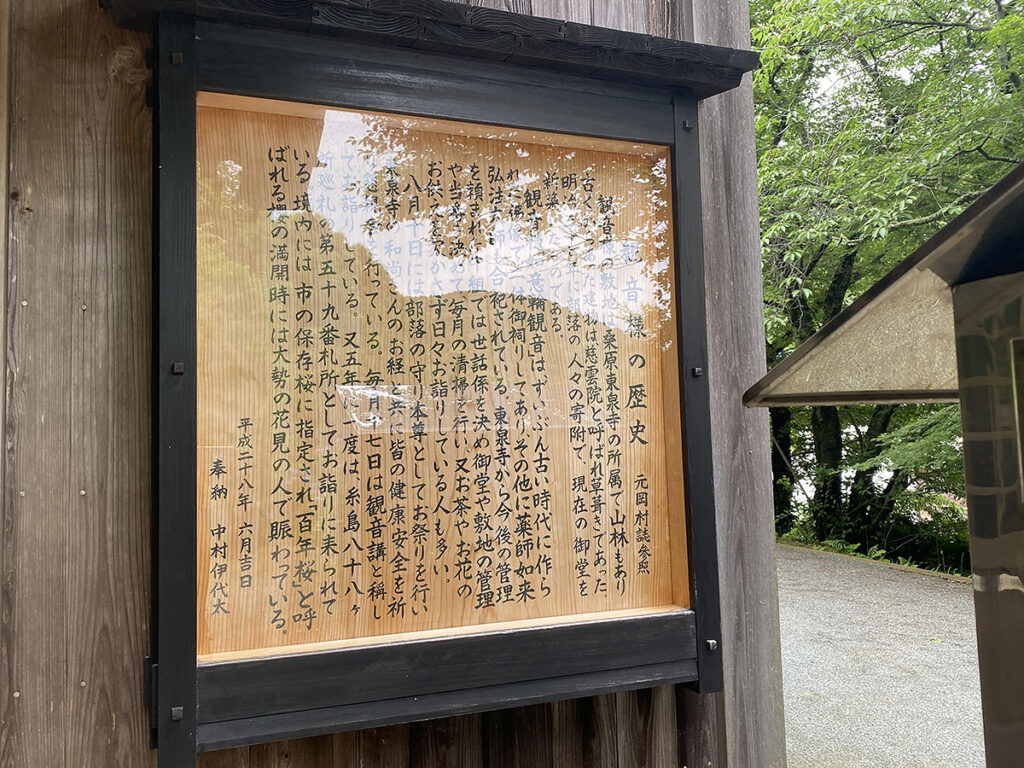 観音様の歴史 元岡村誌参照
観音堂の敷地は桑原東泉寺の所属で山林もあり
古く 建物は慈雲院と呼ばれ草葺きであった
明治 年に部落の人々の寄附で、現在の御堂を
新築したものである
観音 意輪観音はずいぶん古い時代に作ら
れた佛像で 体御祠りしてありその他に薬師如来
弘法 も合祀されている。東泉寺から今後の管理
を頼まれ 組では世話係を決め御堂や敷地の管理
や当番を決めて毎月の清掃を行い、又お茶やお花の
お供えを かさず日々お詣りしている人も多い。
八月十日には部落の守り本尊としてお祭りを行い
東泉寺の和尚さんのお経と共に皆の健康安全を祈
を行っている。毎月十七日は観音講と称し
てお詣りしている。又五年に一度は、糸島八十八ヶ
所巡礼の第五十九番札所としてお詣りに来られて
いる。境内には市の保存桜に指定され「百年桜」と呼
ばれる桜の満開時には大勢の花見の人で賑わっている。
平成二十八年 六月吉日
奉納 中村伊代太